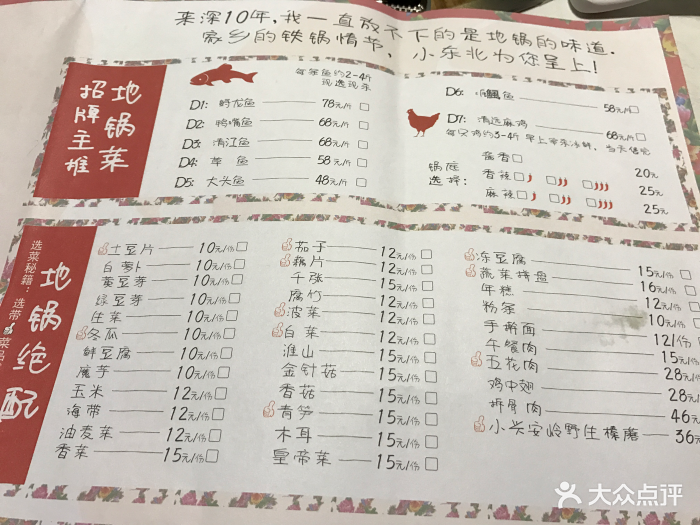 来深10年,我一直放不下的是地锅的味道.
家乡的铁锅情节,小东北为您呈上!
地锅菜
招牌主推
每条鱼约2-4斤
现选现杀
D1: 鸦龙鱼 78元/斤
D2: 鸭嘴鱼 68元/斤
D3: 清江鱼 68元/斤
D4: 草鱼 58元/斤
D5: 大头鱼 48元/斤
D6: 鱼 58元/斤
D7: 清远麻鸡 68元/斤
每只鸡约3-4斤 早上带来冷鲜,当天售完
锅底选择:
酱香 20元
香辣 25元
麻辣 25元
地锅绝配
选菜秘籍: 选带 菜品
土豆片 10元/份
白萝卜 10元/份
黄豆芽 10元/份
绿豆芽 10元/份
生菜 10元/份
冬瓜 10元/份
鲜豆腐 10元/份
魔芋 10元/份
玉米 12元/份
海带 12元/份
油麦菜 12元/份
香菜 15元/份
茄子 12元/份
藕片 12元/份
千张 12元/份
腐竹 12元/份
菠菜 12元/份
白菜 12元/份
淮山 15元/份
金针菇 15元/份
香菇 15元/份
青笋 15元/份
木耳 15元/份
皇帝菜 15元/份
冻豆腐 15元/份
蔬菜拼盘 16元/份
年糕 12元/份
粉条 10元/份
手擀面 12/份
午餐肉 15元/份
五花肉 28元/份
鸡中翅 28元
拆骨肉 46元
小兴安岭野生榛蘑 36元
大众点评